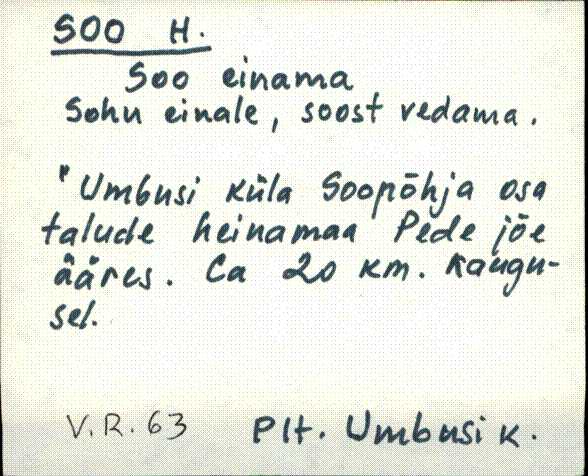 SOO H.
Soo einama
Sohu einale, soost vedama.
"Umbusi küla Soopõhja osa
talude heinamaa Pede jõe
ääres. Ca 20 km. kaugu-
sel.
V.R. 63 Plt. Umbusi k.